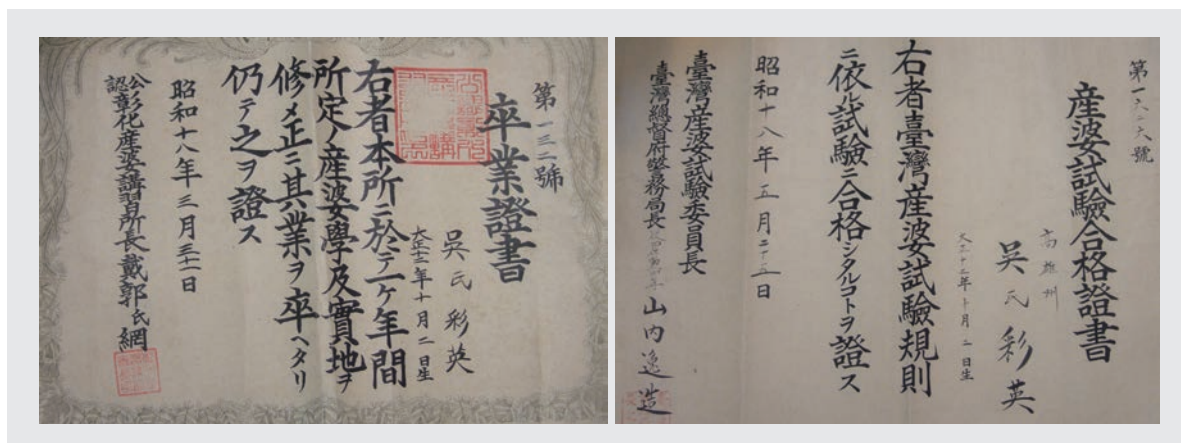 第一三二號
卒業證書
吳氏彩英
大正十二年十月二日生
右者本所ニ於テ一ケ年間
所定ノ産婆學及實地ヲ
修メ正ニ其業ヲ卒ヘタリ
仍テ之ヲ證ス
昭和十八年三月三十一日
公認彰化産婆講習所長戴郭氏網
産婆試驗合格證書
高雄州
吳氏彩英
大正十二年十月二日生
右者臺灣産婆試驗規則
ニ依ル試驗ニ合格シタルコトヲ證ス
昭和十八年五月二十五日
臺灣産婆試驗委員長
臺灣總督府警務局長
山内逸造